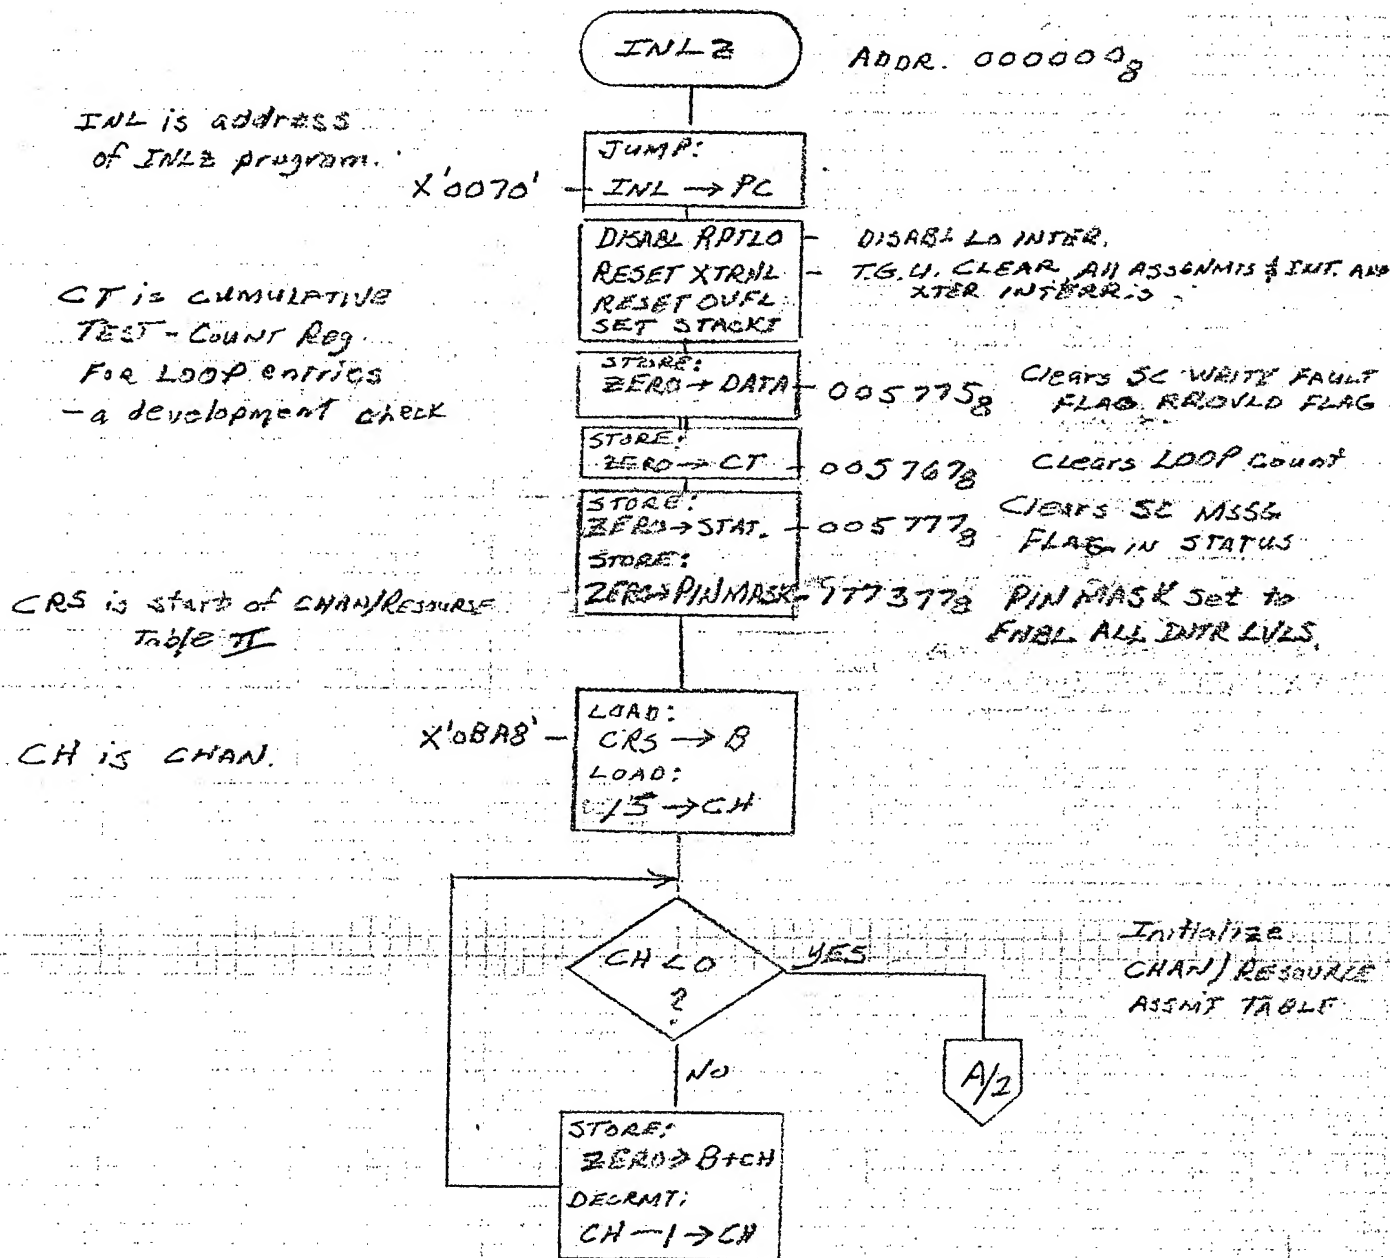 INLZ
ADDR. 000000₈
INL is address
of INLZ program.
X'0070'
JUMP:
INL → PC
DISABL RPTLO - DISABL LO INTER.
RESET XTRNL - T.G.U. CLEAR All ASSGNMTS & INT. AND
XTER INTERR.S
RESET OVFL
SET STACKT
CT is CUMULATIVE
TEST-COUNT Reg
FOR LOOP entries
- a development check
STORE:
ZERO → DATA - 005775₈
Clears SC WRITE FAULT
FLAG RROVLD FLAG
STORE:
ZERO → CT - 005767₈ Clears LOOP Count
STORE:
ZERO → STAT. - 005777₈
Clears SC MSSG
FLAG IN STATUS
STORE:
ZERO → PINMASK - 777377₈ PIN MASK set to
ENBL ALL INTR LVLS.
CRS is start of CHAN/RESOURSE
Table II
CH is CHAN.
X'0BA8'
LOAD:
CRS → B
LOAD:
15 → CH
CH < 0
?
YES
NO
A/2
Initialize
CHAN/RESOURCE
ASSMT TABLE
STORE:
ZERO → B+CH
DECRMT:
CH - 1 → CH